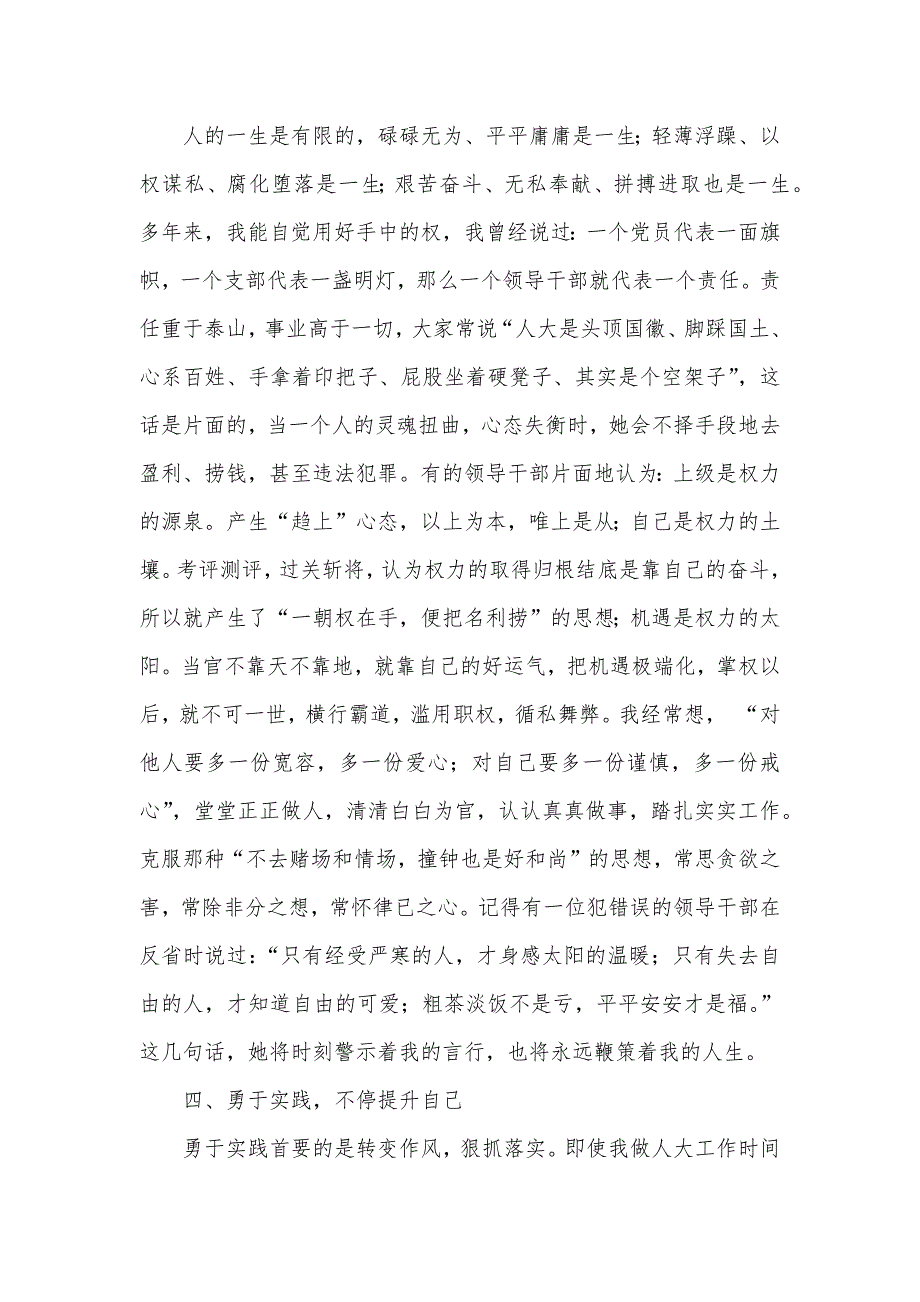 人的一生是有限的，碌碌无为、平平庸庸是一生；轻薄浮躁、以
权谋私、腐化堕落是一生；艰苦奋斗、无私奉献、拼搏进取也是一生。
多年来，我能自觉用好手中的权，我曾经说过：一个党员代表一面旗
帜，一个支部代表一盏明灯，那么一个领导干部就代表一个责任。责
任重于泰山，事业高于一切，大家常说“人大是头顶国徽、脚踩国土、
心系百姓、手拿着印把子、屁股坐着硬凳子、其实是个空架子”，这
话是片面的，当一个人的灵魂扭曲，心态失衡时，她会不择手段地去
盈利、捞钱，甚至违法犯罪。有的领导干部片面地认为：上级是权力
的源泉。产生“趋上”心态，以上为本，唯上是从；自己是权力的土
壤。考评测评，过关斩将，认为权力的取得归根结底是靠自己的奋斗，
所以就产生了“一朝权在手，便把名利捞”的思想；机遇是权力的太
阳。当官不靠天不靠地，就靠自己的好运气，把机遇极端化，掌权以
后，就不可一世，横行霸道，滥用职权，循私舞弊。我经常想， “对
他人要多一份宽容，多一份爱心；对自己要多一份谨慎，多一份戒
心”，堂堂正正做人，清清白白为官，认认真真做事，踏扎实实工作。
克服那种“不去赌场和情场，撞钟也是好和尚”的思想，常思贪欲之
害，常除非分之想，常怀律已之心。记得有一位犯错误的领导干部在
反省时说过：“只有经受严寒的人，才身感太阳的温暖；只有失去自
由的人，才知道自由的可爱；粗茶淡饭不是亏，平平安安才是福。”
这几句话，她将时刻警示着我的言行，也将永远鞭策着我的人生。
四、勇于实践，不停提升自己
勇于实践首要的是转变作风，狠抓落实。即使我做人大工作时间